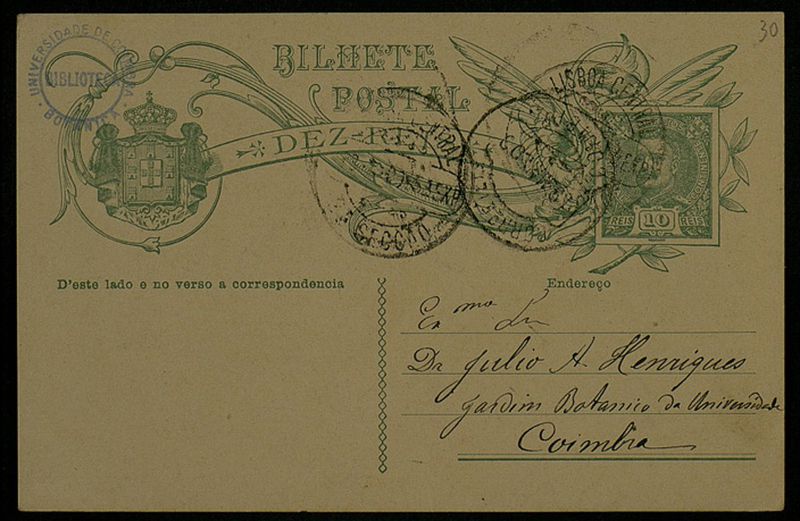 30
UNIVERSIDADE DE COIMBRA
BIBLIOTECA
BOTANICA
BILHETE
POSTAL
DEZ REIS
LISBOA CENTRAL
CENTRAL
SECÇÃO
REIS 10 REIS
D'este lado e no verso a correspondencia
Endereço
Exmo Snr
Dr Julio A. Henriques
Jardim Botanico da Universidade
Coimbra